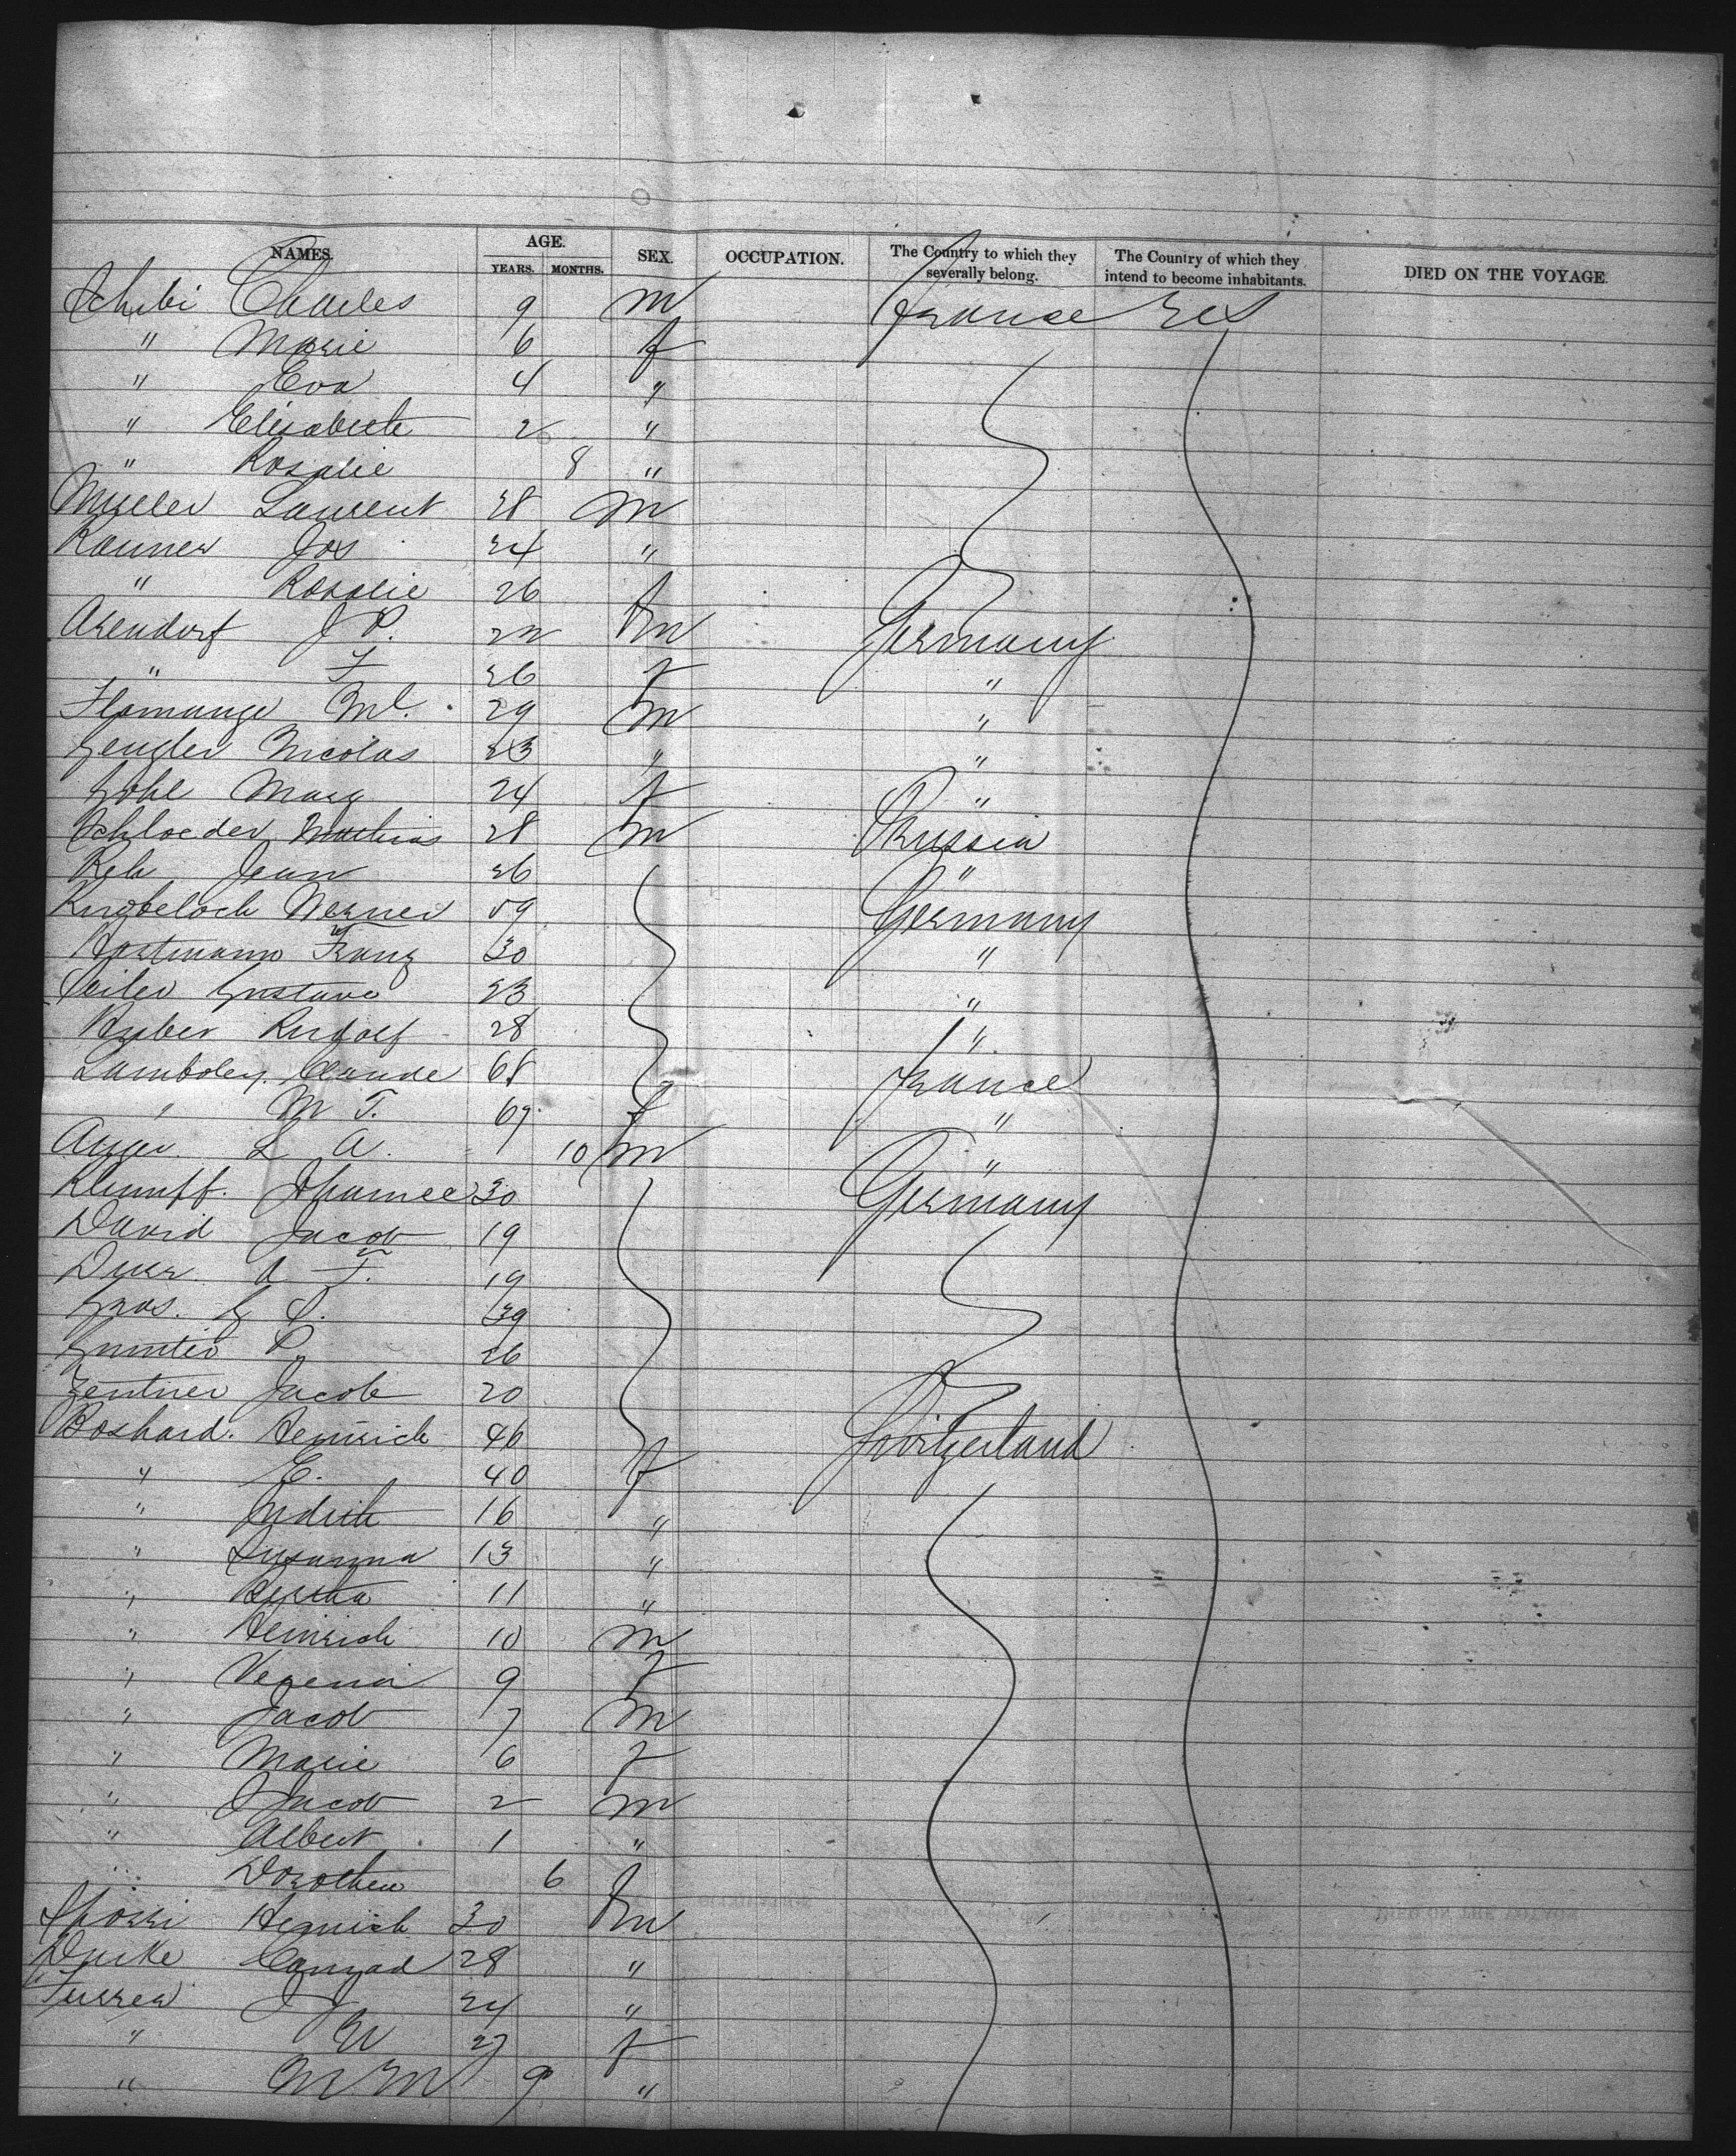 NAMES. AGE. YEARS. MONTHS. SEX. OCCUPATION. The Country to which they severally belong. The Country of which they intend to become inhabitants. DIED ON THE VOYAGE.
Charles 9 m France
" Marie 6 f
" Eva 4 "
" Elisabeth 2 "
" Rosalie 8 "
Mueller Laurent 28 m
Jos 24 "
" Rosalie 26 f
Arendorf J P. 22 m Germany
" F 26 f "
Flamange Ml. 29 m "
Gengler Nicolas 23 " "
Gohl Marg 24 f "
Schloeder Mathias 28 m Prussia
Reh Jean 26 "
Knobeloch Werner 59 Germany
Hartmann Franz 30 "
Seiler Gustave 23 "
Huber Rudolf 28 "
Lamboley Claude 68 France
" M T. 67 f "
L A. 1 10 m "
30 Germany
David Jacob 19
Durr A F. 19
Gros. G S. 39
P 26
Zentner Jacob 20
Boshard. Heinrich 46 Switzerland
" E. 40 f
" Judith 16 "
" Susanna 13 "
" Bertha 11 "
" Heinrich 10 m
" Verena 9 f
" Jacob 7 m
" Marie 6 f
" J Jacob 2 m
" Albert 1 "
" Dorothea 6 f
Sporri Heinrich 30 m
Conrad 28 "
Furrer J J 24 "
" 27 f
" 9 "